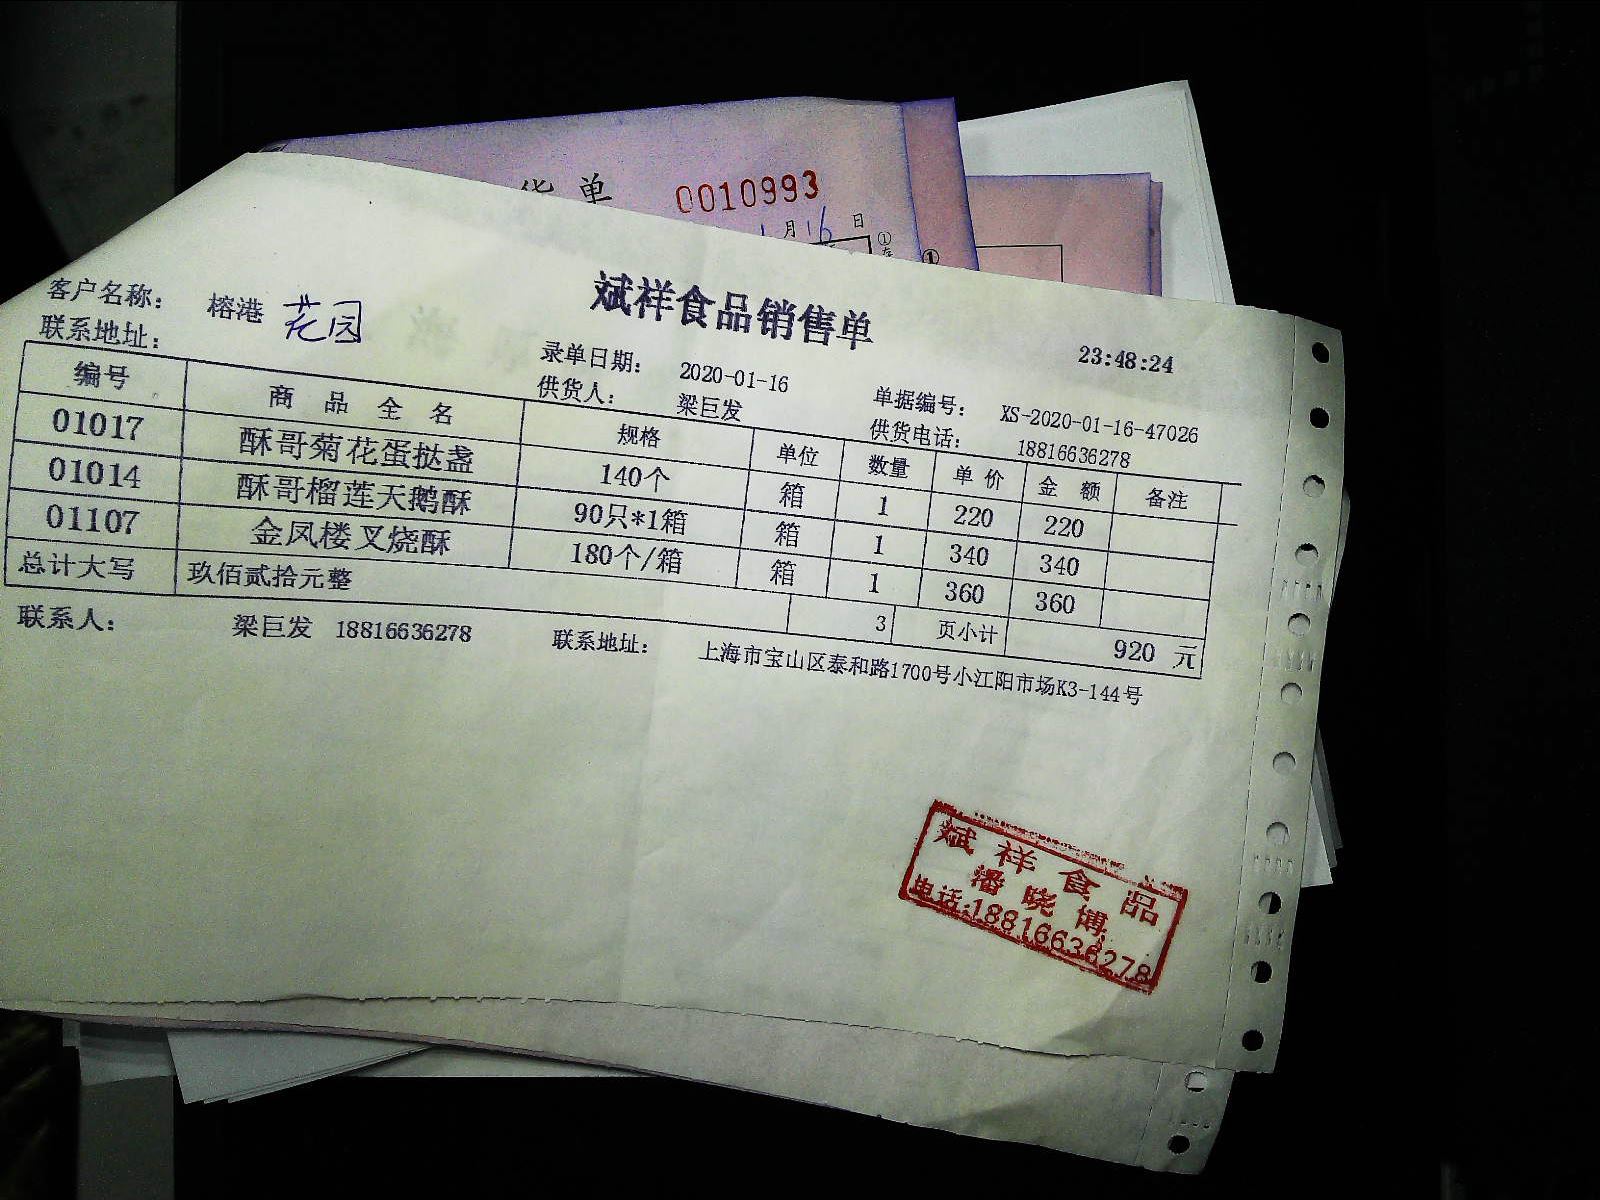 货单 0010993
月16日
①
①
斌祥食品销售单
23:48:24
客户名称: 榕港 花园
录单日期: 2020-01-16 单据编号: XS-2020-01-16-47026
联系地址: 供货人: 梁巨发 供货电话: 18816636278
编号 商品全名 规格 单位 数量 单价 金额 备注
01017 酥哥菊花蛋挞盏 140个 箱 1 220 220
01014 酥哥榴莲天鹅酥 90只*1箱 箱 1 340 340
01107 金凤楼叉烧酥 180个/箱 箱 1 360 360
总计大写 玖佰贰拾元整 3 页小计 920 元
联系人: 梁巨发 18816636278 联系地址: 上海市宝山区泰和路1700号小江阳市场K3-144号
斌祥食品
潘晓博
电话:18816636278